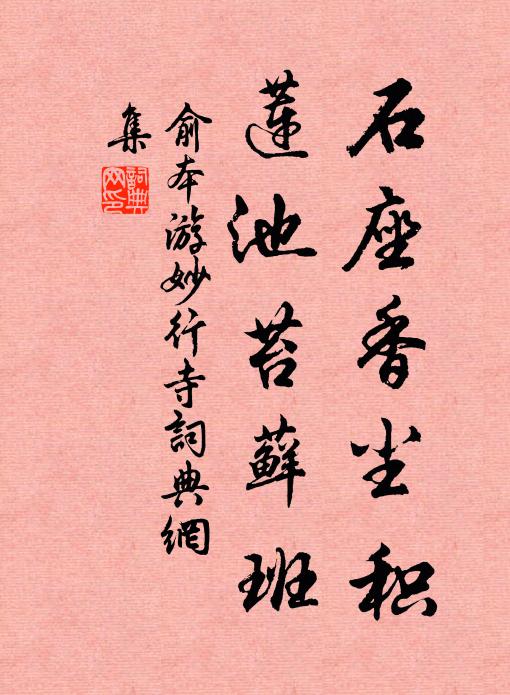 石座香尘积
莲池苔藓班
俞本游妙行寺詞典網
集
詞典網印